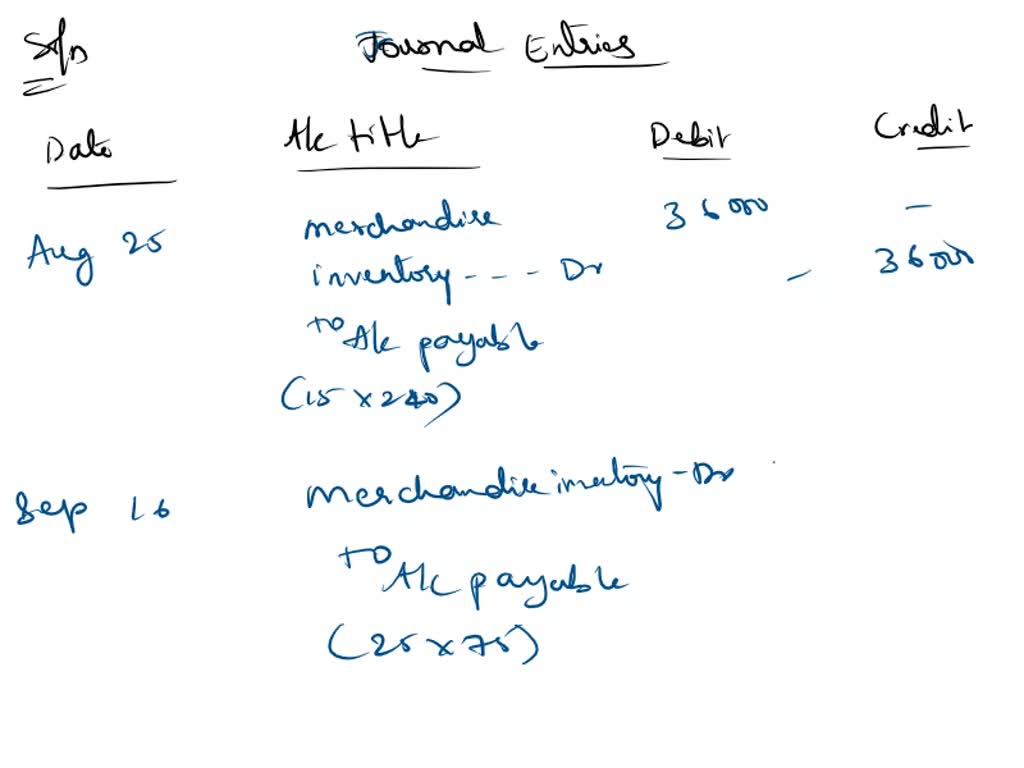 Soln
Journal Entries
Date A/c title Debit Credit
Aug 25 merchandise 36000 -
inventory - - - Dr - 36000
to A/c payable
(15 x 240)
Sep 16 merchandise inventory - Dr
to A/c payable
(25 x 75)